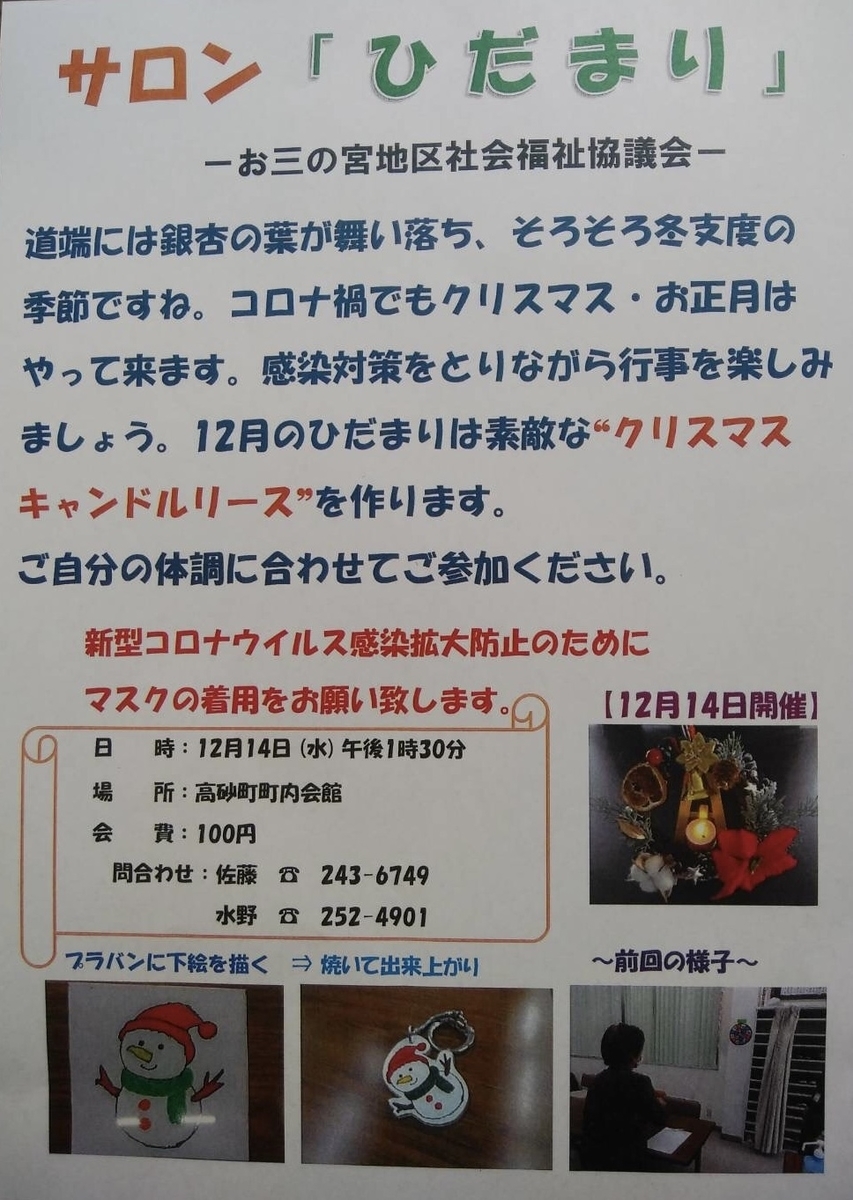 サロン「ひだまり」
－お三の宮地区社会福祉協議会－
道端には銀杏の葉が舞い落ち、そろそろ冬支度の
季節ですね。コロナ禍でもクリスマス・お正月は
やって来ます。感染対策をとりながら行事を楽しみ
ましょう。12月のひだまりは素敵な“クリスマス
キャンドルリース”を作ります。
ご自分の体調に合わせてご参加ください。
新型コロナウイルス感染拡大防止のために
マスクの着用をお願い致します。
【12月14日開催】
日　時：12月14日（水）午後1時30分
場　所：高砂町町内会館
会　費：100円
問合わせ：佐藤 ☎ 243-6749
水野 ☎ 252-4901
プラバンに下絵を描く ⇒ 焼いて出来上がり
～前回の様子～